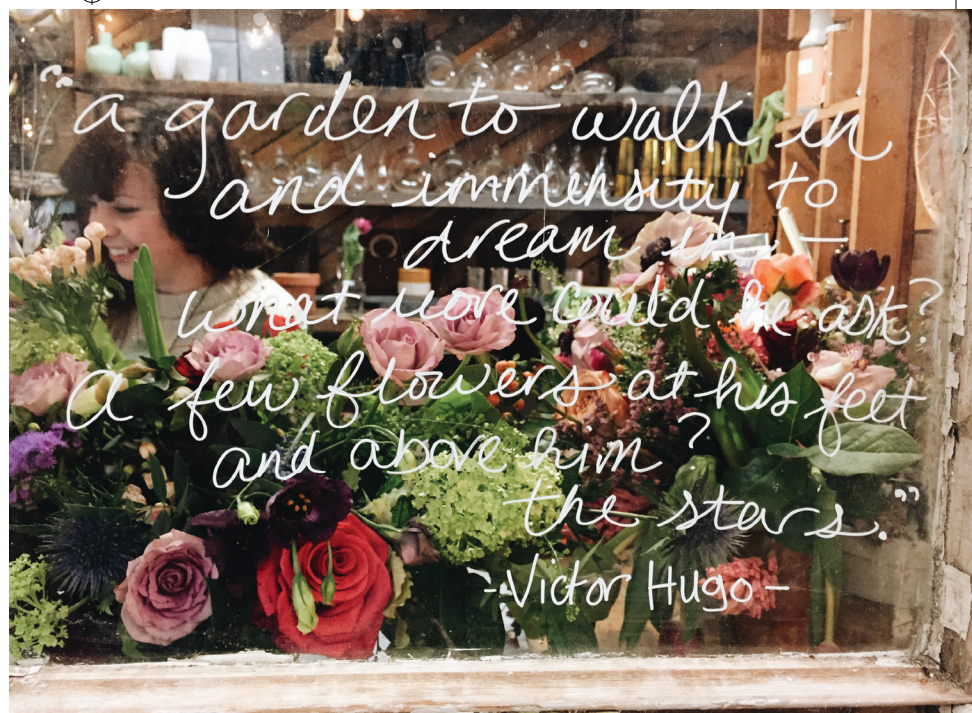 "a garden to walk in
and immensity to
dream in —
what more could he ask?
A few flowers at his feet
and above him ?
the stars."
- Victor Hugo -